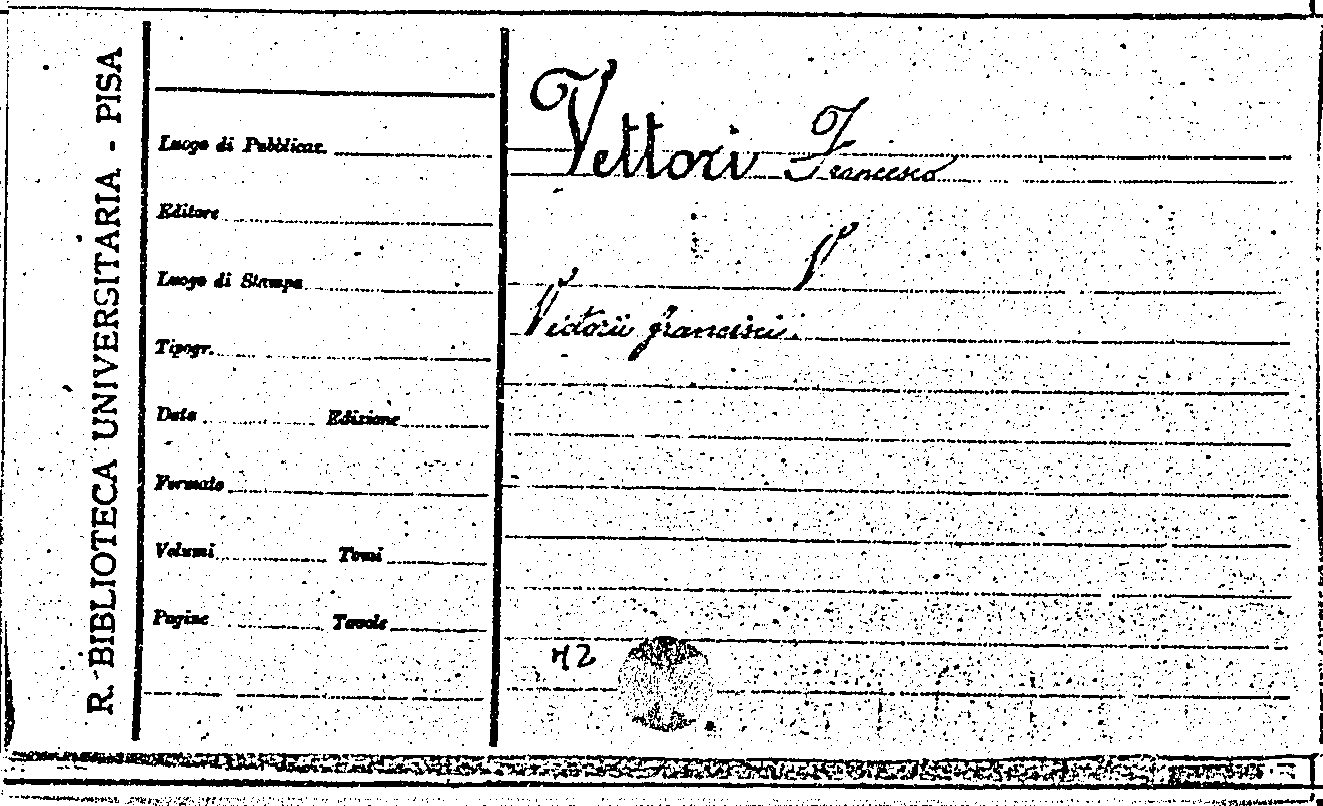 R. BIBLIOTECA UNIVERSITARIA - PISA
Luogo di Pubblicaz.
Editore
Luogo di Stampa
Tipogr.
Data Edizione
Formato
Volumi Tomi
Pagine Tavole
Vettori Francesco
V
Victorii francisci.
42